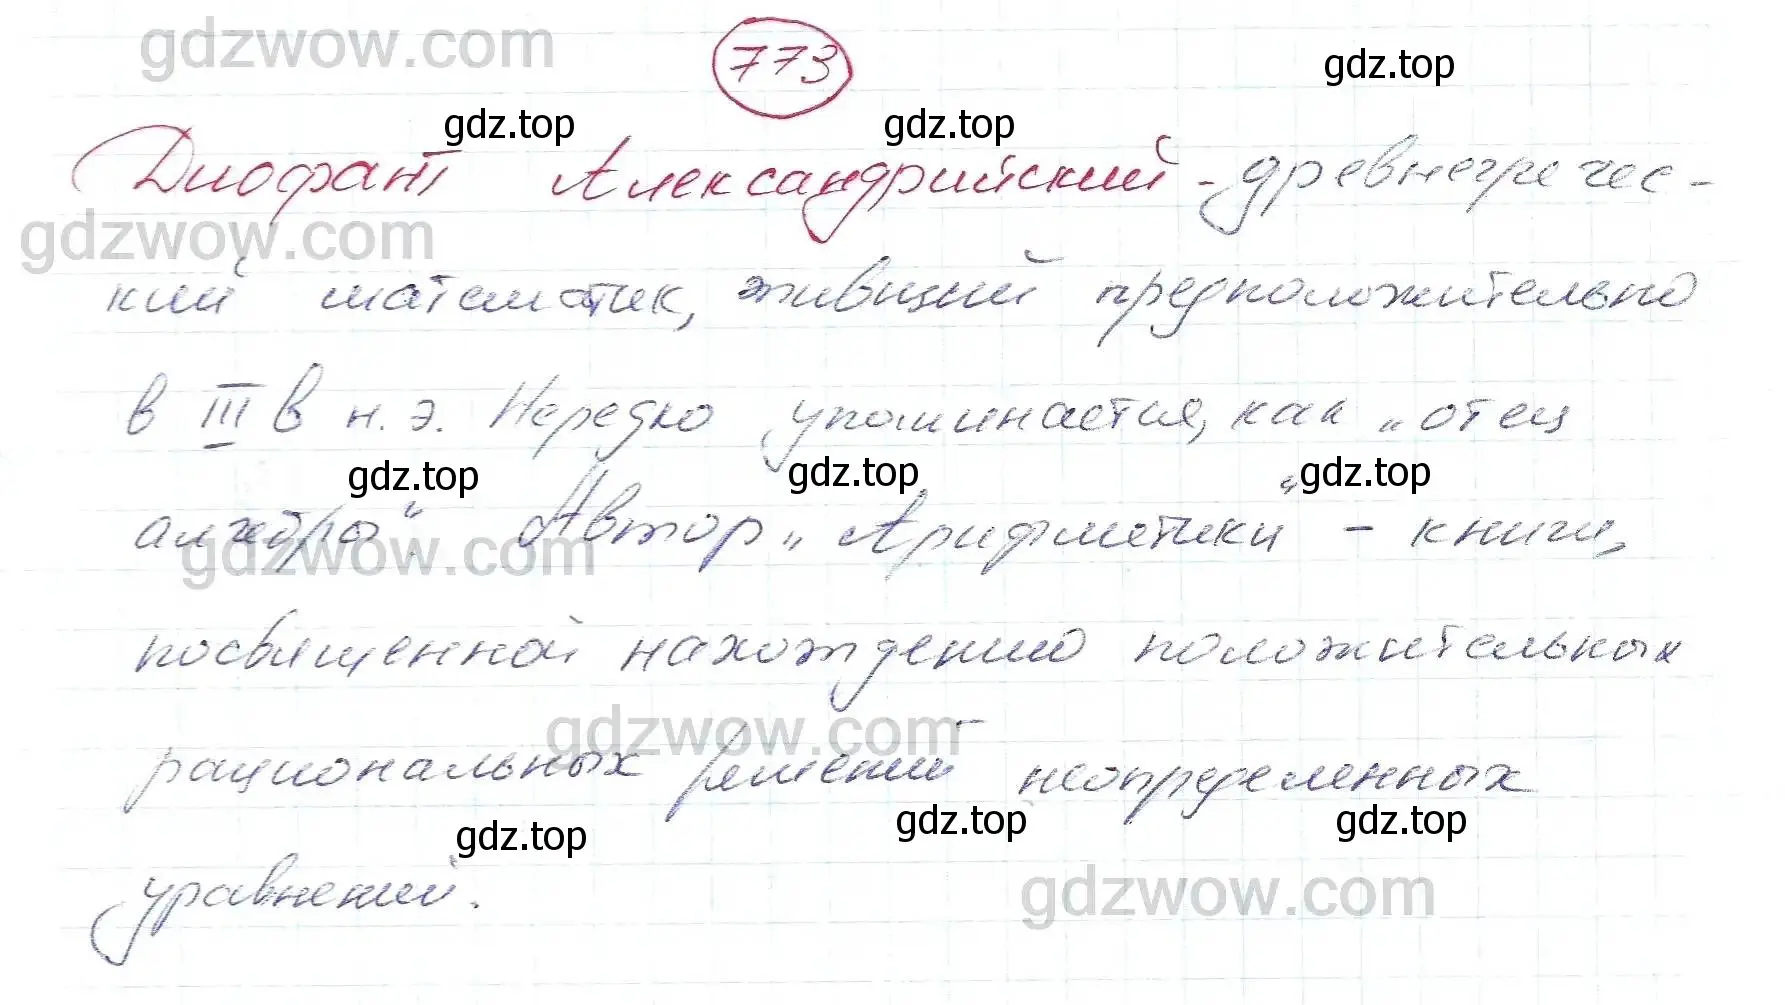 gdzwow.com
773
gdz.top
gdz.top gdz.top
Диофант Александрийский - древнегречес-
gdzwow.com
кий математик, живший предположительно
в III в н. э. Нередко упоминается, как „отец
gdz.top gdz.top gdz.top
алгебры“. Автор „Арифметики“ - книги,
gdzwow.com
посвященной нахождению положительных
gdzwow.com
рациональных решений неопределенных
gdz.top gdz.top gdz.top
уравнений.
gdzwow.com